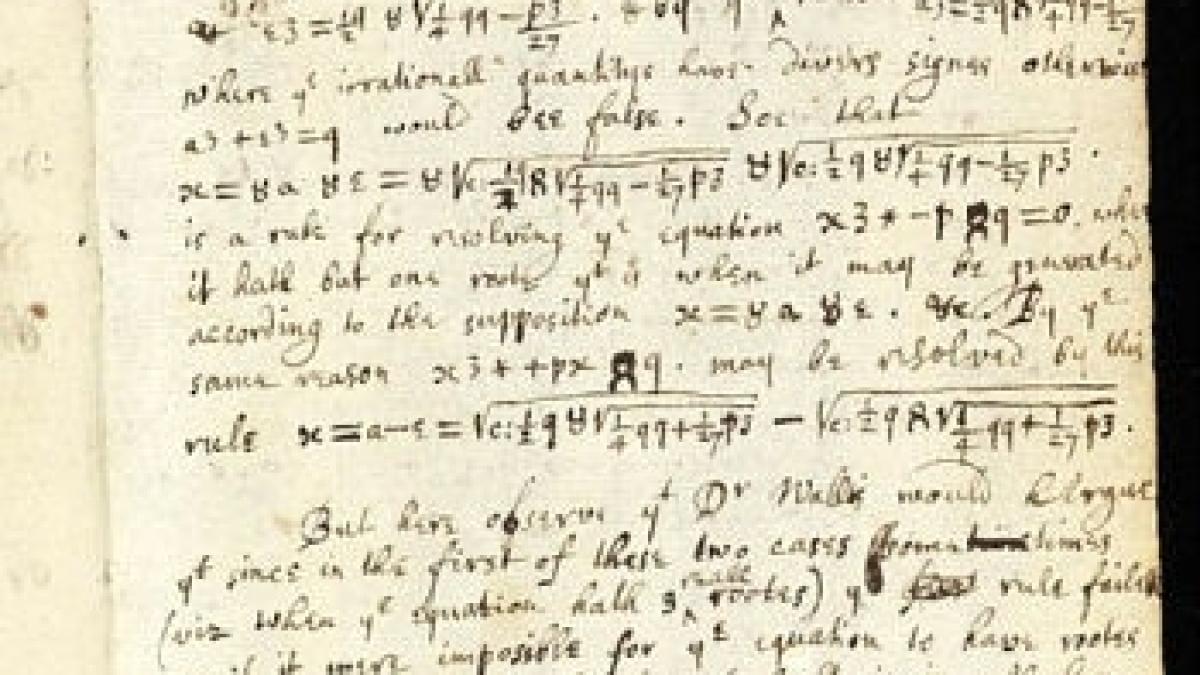 e3 = ½q ४ √¼qq − p3/27 .
where yᵉ irrationall quantitys have divers signes otherwise
a3 + e3 = q would bee false. Soe that
x = ४a ४e = ४√c: ½q 8 √¼qq − 1/27 p3 ४√c: ½q ४ √¼qq − 1/27 p3 .
is a rule for resolving yᵉ equation x3 * − p 8 q = 0. when
it hath but one roote yᵗ is when it may be generated
according to the supposition x = ४a ४e . &c. By yᵉ
same reason x3 * + px 8 q . may be resolved by this
rule x = a − e = √c: ½q ४ √¼qq + 1/27 p3 − √c: ½q 8 √¼qq + 1/27 p3 .
But here observe yᵗ Dʳ Wallis would Argue
yᵗ since in the first of these two cases sometimes
(viz when yᵉ equation hath 3 reall rootes) yᵉ rule failes
it were impossible for yᵉ equation to have rootes